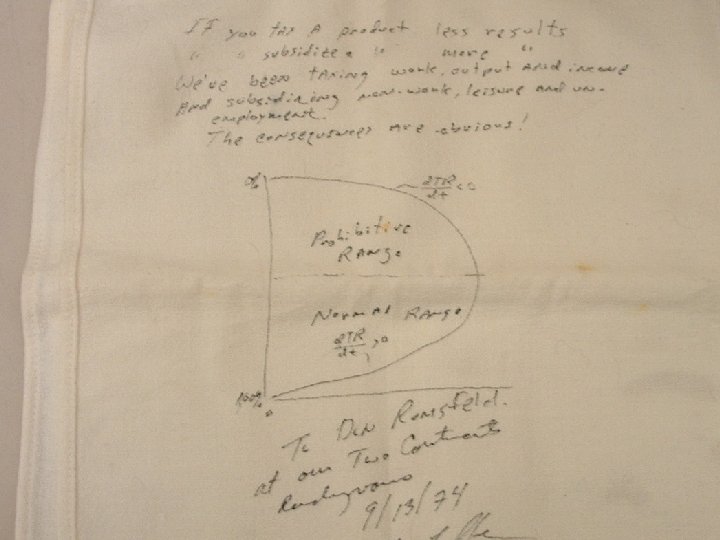 If you tax A product less results
" " subsidize " " more "
We've been taxing work, output and income
And subsidizing non-work, leisure and un-
employment.
The consequences are obvious!
0%
∂TR/∂t < 0
Prohibitive
RANGE
Normal Range
∂TR/∂t > 0
100%
0
To Don Rumsfeld.
at our Two Continents
Rendezvous
9/13/74